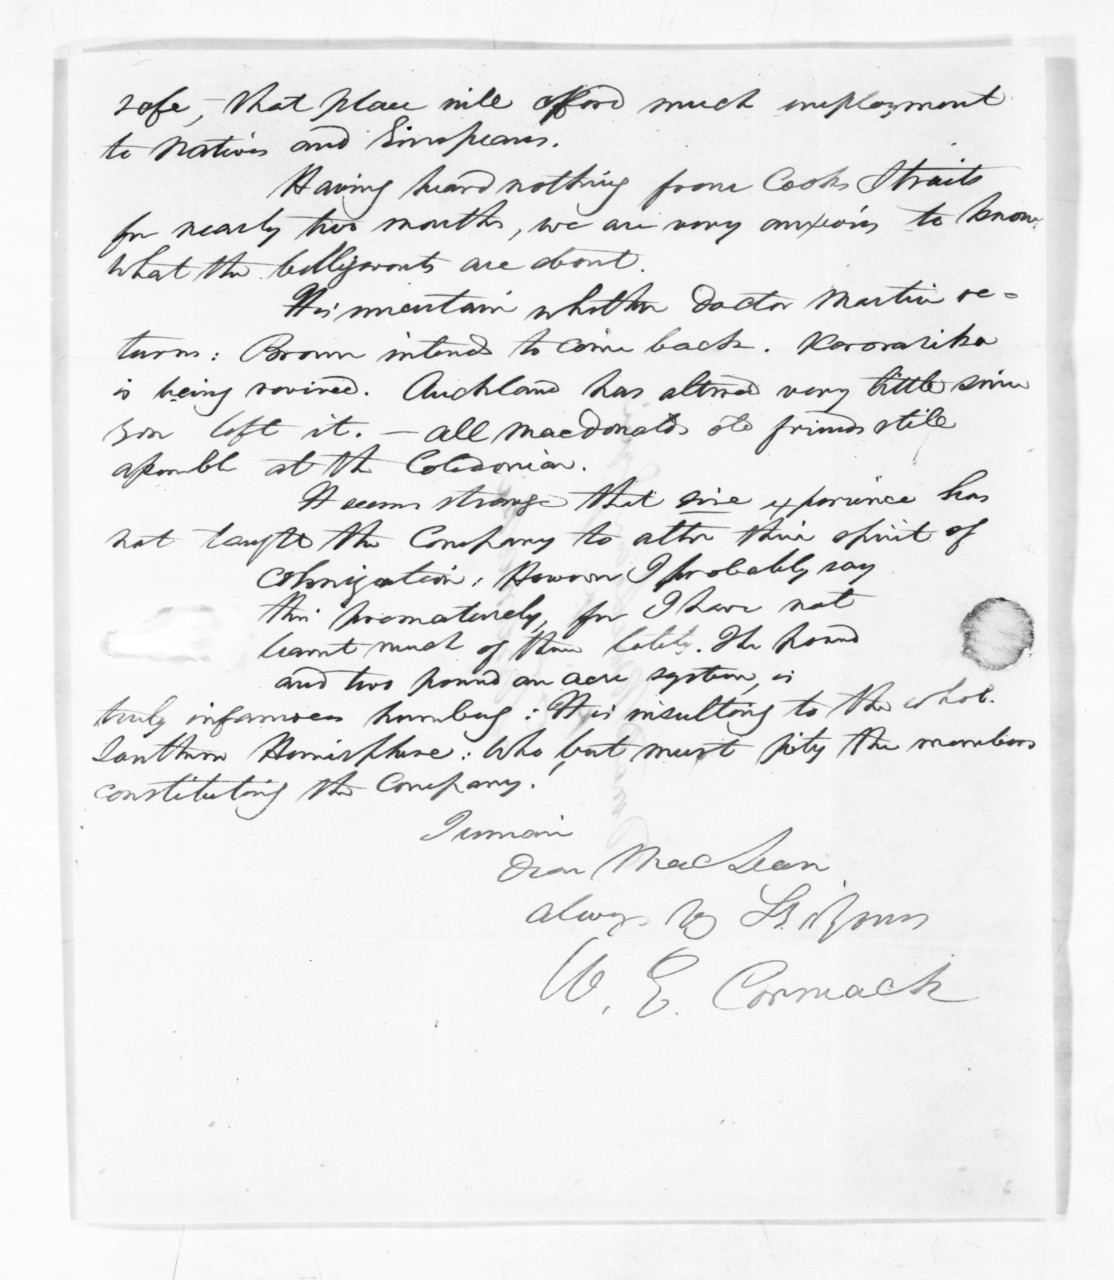 safe, – that place will afford much employment
to Natives and Europeans.
Having heard nothing from Cooks Straits
for nearly two months, we are very anxious to know
what the belligerents are about.
It is uncertain whether Doctor Martin re=
turns: Brown intends to come back. Kororarika
is being revived. Auckland has altered very little since
you left it. – all MacDonalds old friends still
assemble at the Caledonian.
It seems strange that experience has
not taught the Company to alter their spirit of
Colonization: However I probably say
this prematurely, for I have not
learnt much of them lately. The pound
and two pound an acre system, is
truly infamous humbug: It is insulting to the whole
Southern Hemisphere: Who but must pity the members
constituting the Company!
I remain
Dear MacLean
always Yours
W. E. Cormack